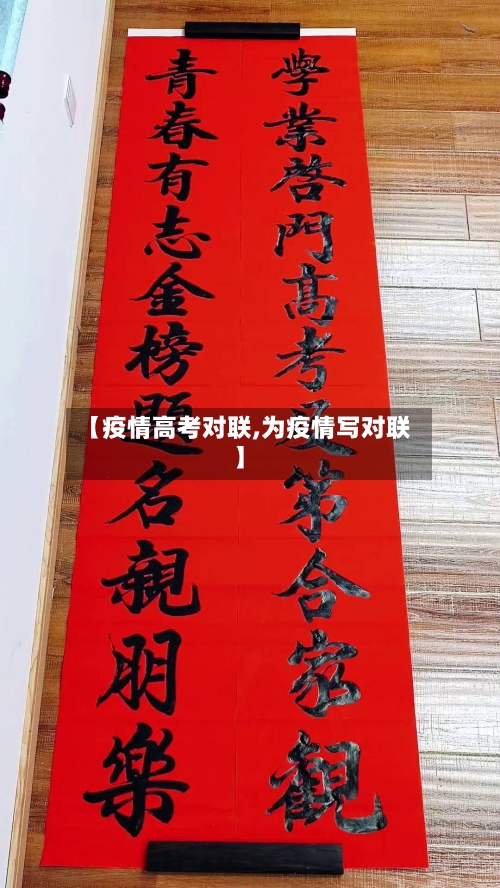 學業啓門高考及第合家觀
青春有志金榜題名親朋樂
【疫情高考对联,为疫情写对联
】